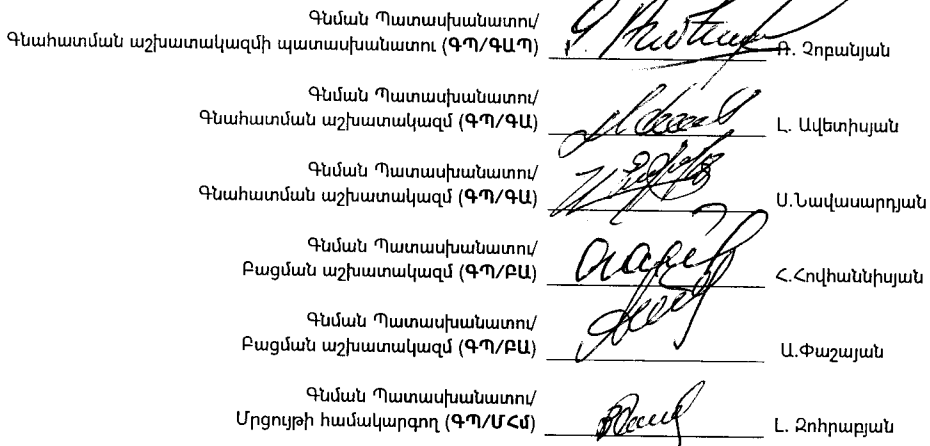 Գնման Պատասխանատու/
Գնահատման աշխատակազմի պատասխանատու (ԳՊ/ԳԱՊ) Ռ. Չոբանյան
Գնման Պատասխանատու/
Գնահատման աշխատակազմ (ԳՊ/ԳԱ) Լ. Ավետիսյան
Գնման Պատասխանատու/
Գնահատման աշխատակազմ (ԳՊ/ԳԱ) Ս.Նավասարդյան
Գնման Պատասխանատու/
Բացման աշխատակազմ (ԳՊ/ԲԱ) Հ.Հովհաննիսյան
Գնման Պատասխանատու/
Բացման աշխատակազմ (ԳՊ/ԲԱ) Ա.Փաշայան
Գնման Պատասխանատու/
Մրցույթի համակարգող (ԳՊ/ՄՀմ) Լ. Զոհրաբյան